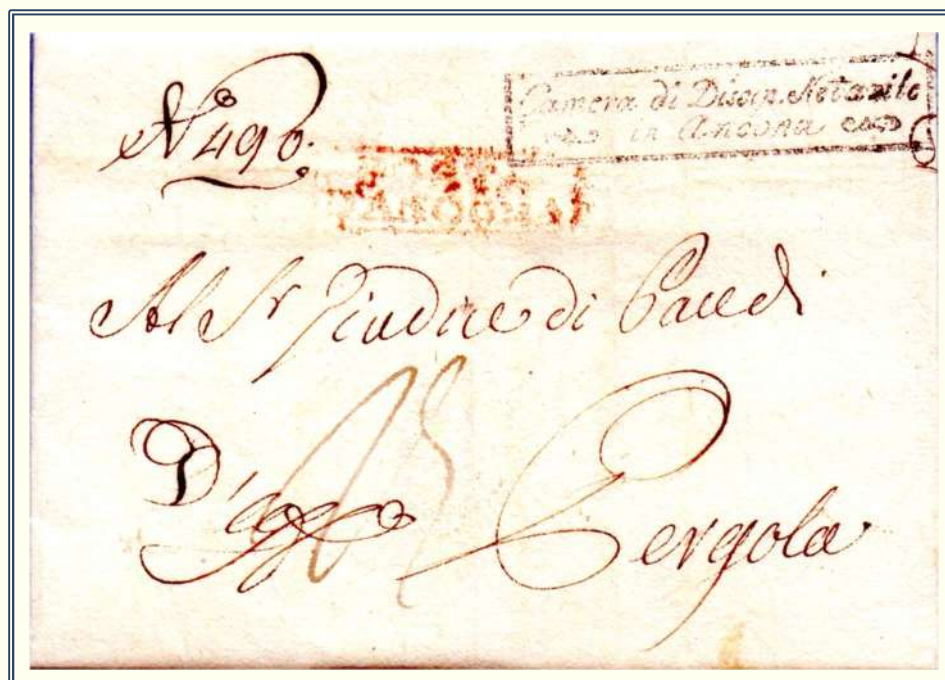 Nº 496.
Camera di Discip. Notarile
in Ancona
ANCONA
Al Sr Giudice di Pace di
D'uffo Pergola